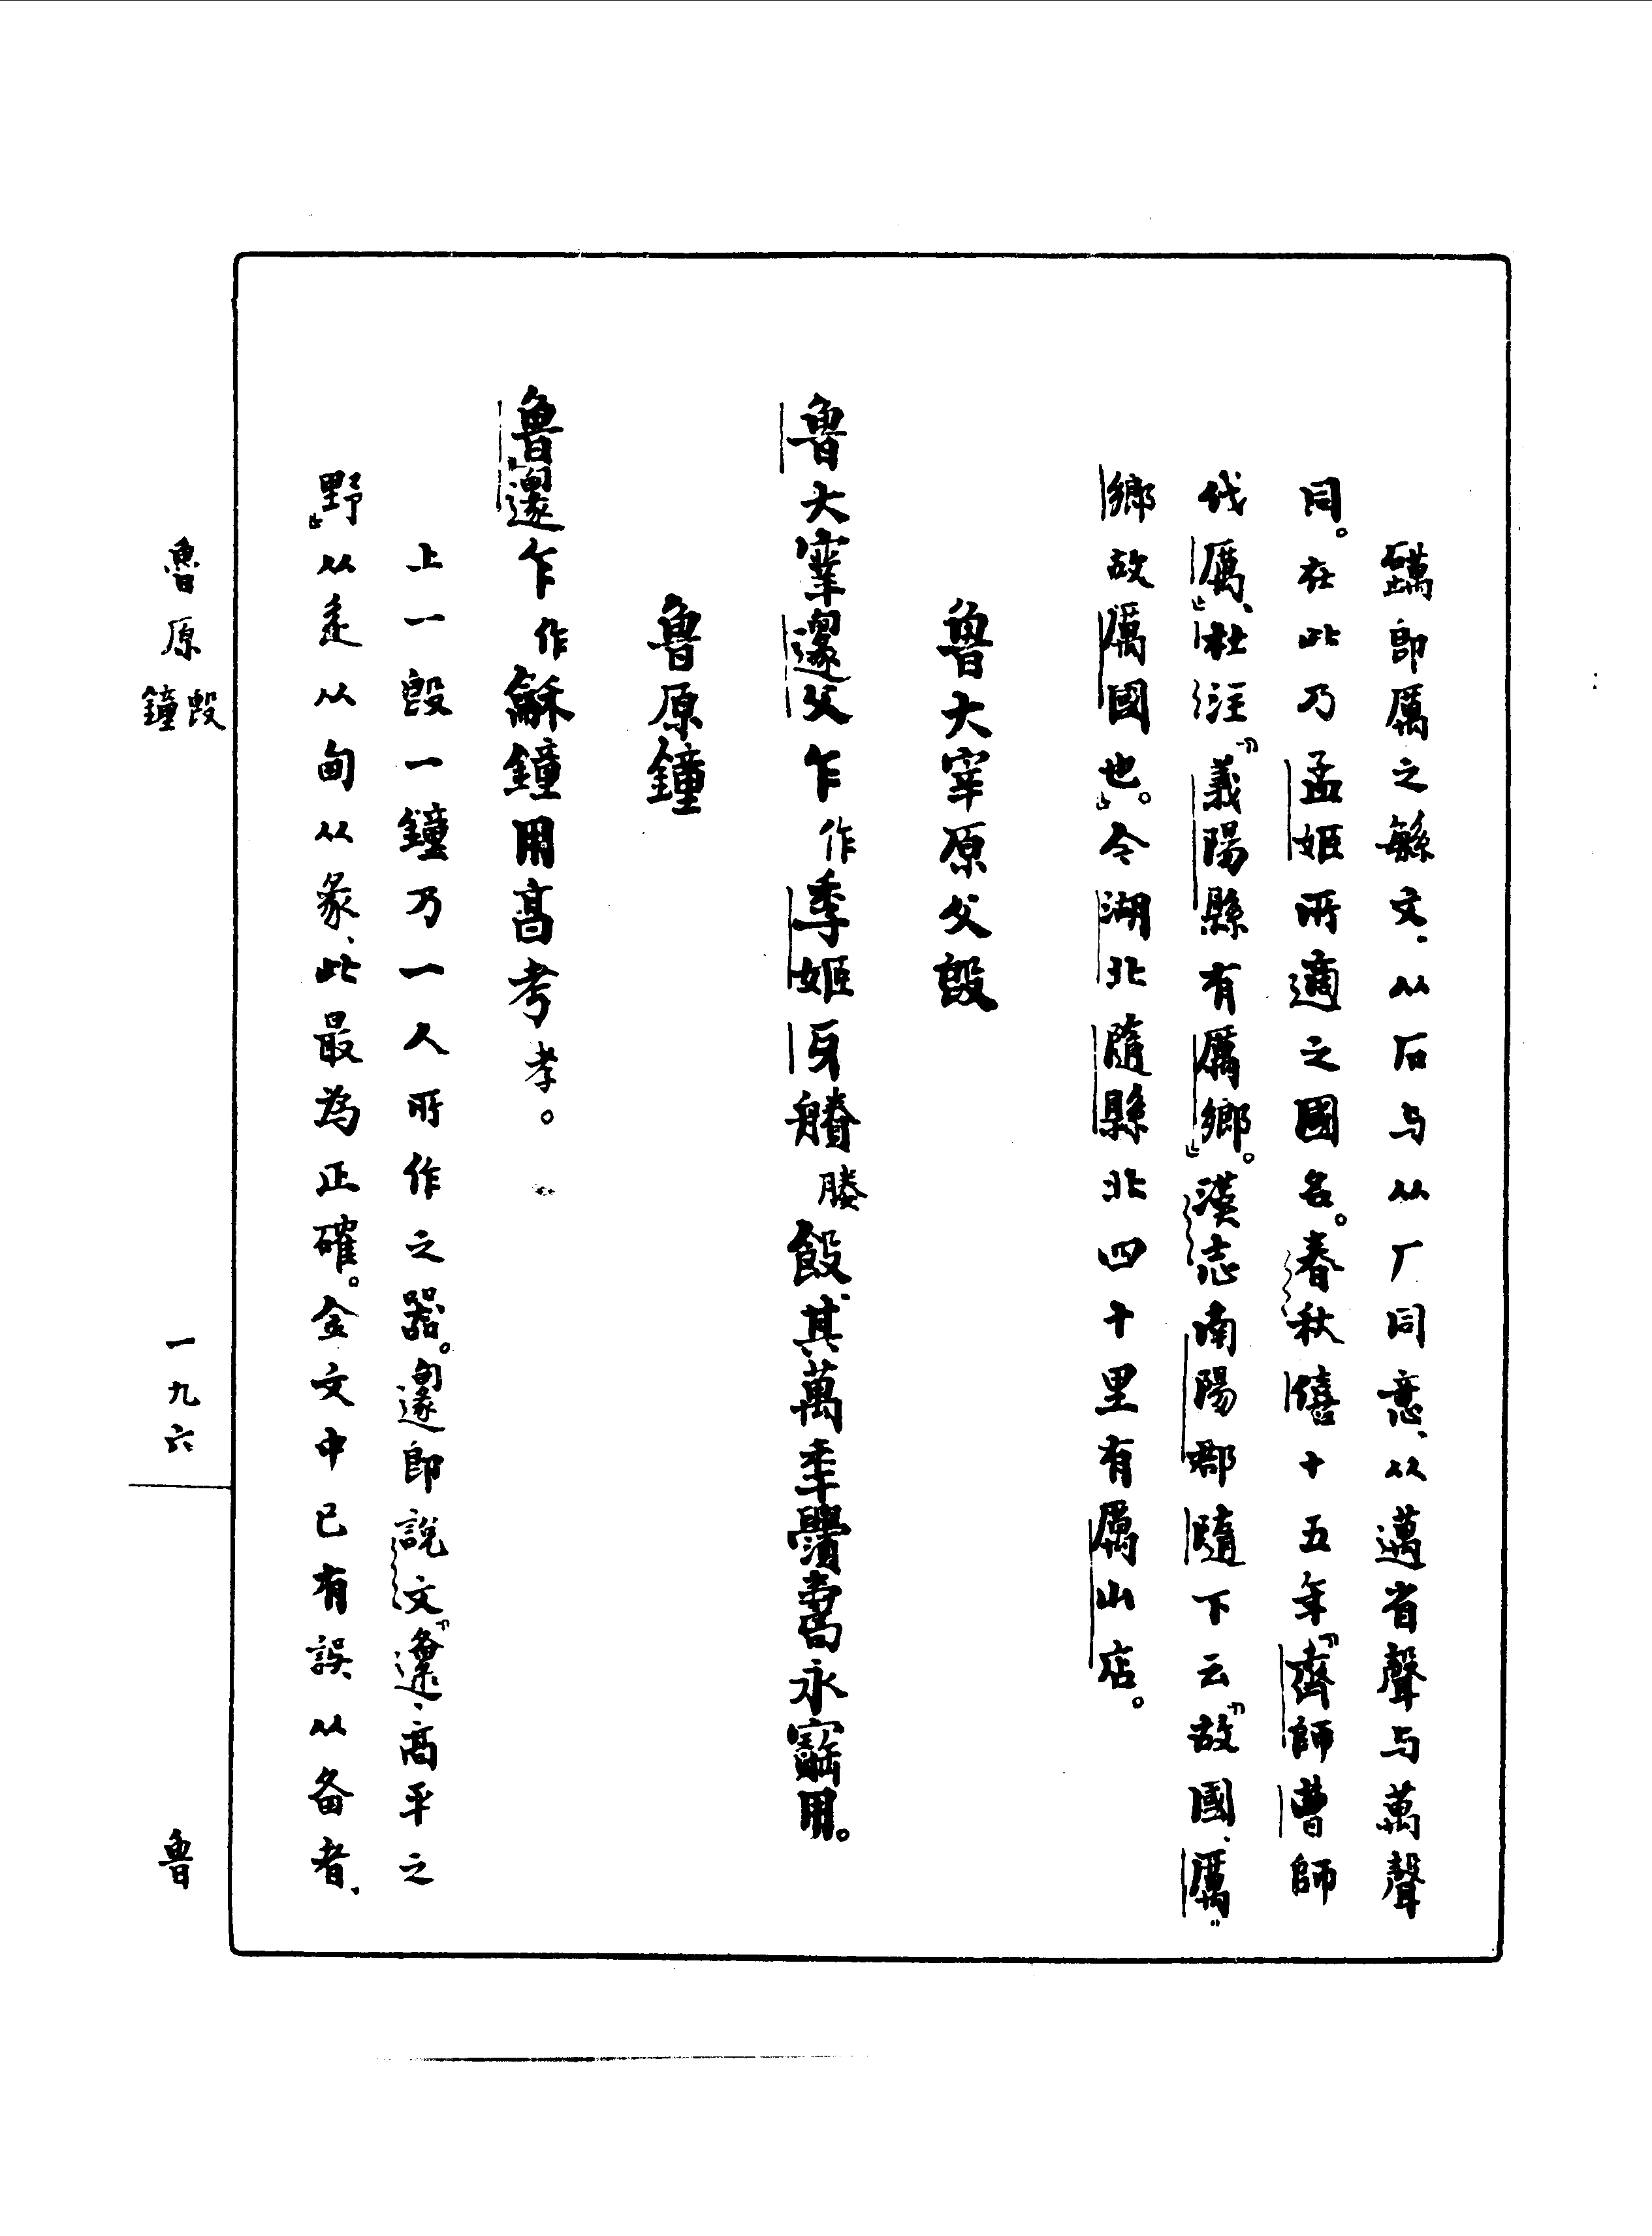 即厲之緐文、从石与从厂同意、从邁省聲与萬聲
同。在此乃孟姬所適之國名。春秋僖十五年『齊師曹師
伐厲』、杜注『義陽縣有厲鄉』。漢志南陽郡隨下云『故國、厲
鄉故厲國也』。今湖北隨縣北四十里有厲山店。
魯大宰原父𣪘
魯大宰邍父乍作季姬牙賸媵𣪘其萬年眉壽永寶用。
魯原鐘
魯邍乍作龢鐘用高考孝。
上一𣪘一鐘乃一人所作之器。邍即說文『邍、高平之
野』从辵从匋从彖、此最為正確。金文中已有誤从备者、
魯原𣪘鐘
一九六
魯